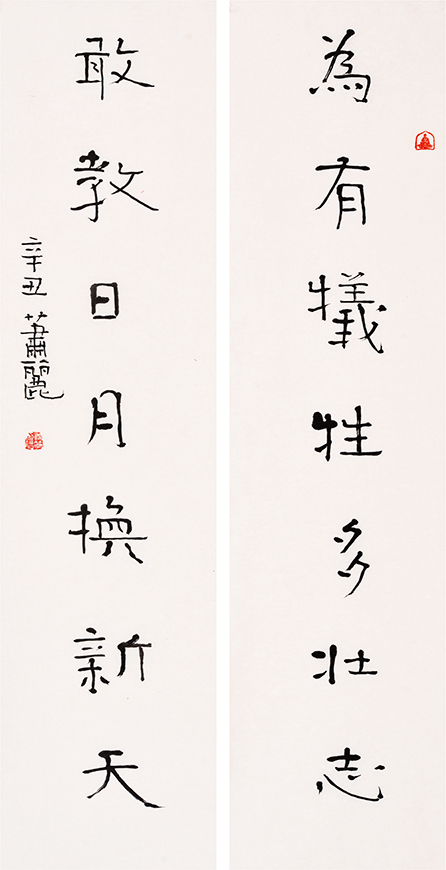 為有犧牲多壯志
敢教日月換新天
辛丑 蕭麗